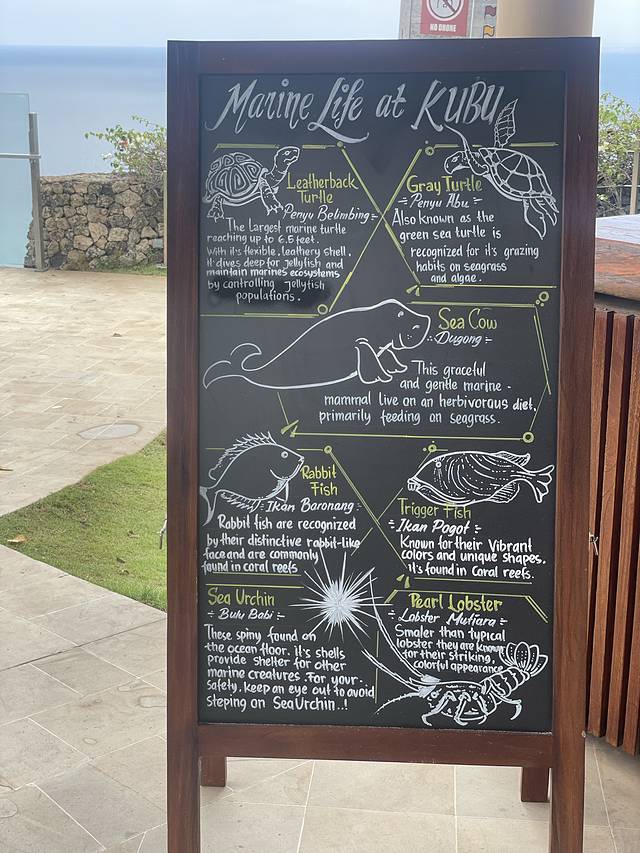 NO DRONE
Marine Life at KUBU
Leatherback
Turtle
Penyu Belimbing
The Largest marine turtle
reaching up to 6.5 feet.
With it's flexible, leathery shell,
it dives deep for jellyfish and
maintain marines ecosystems
by controlling jellyfish
populations.
Gray Turtle
- Penyu Abu -
Also known as the
green sea turtle is
recognized for it's grazing
habits on seagrass
and algae.
Sea Cow
- Dugong -
This graceful
and gentle marine -
mammal live on an herbivorous diet,
primarily feeding on seagrass.
Rabbit
Fish
- Ikan Baronang -
Rabbit fish are recognized
by their distinctive rabbit-like
face and are commonly
found in coral reefs
Trigger Fish
- Ikan Pogot -
Known for their Vibrant
colors and unique shapes,
it's found in Coral reefs.
Sea Urchin
- Bulu Babi -
These spiny found on
the ocean floor. it's shells
provide shelter for other
marine creatures. For your
safety, keep an eye out to avoid
steping on Sea Urchin..!
Pearl Lobster
- Lobster Mutiara -
Smaller than typical
lobster they are known
for their striking,
colorful appearance